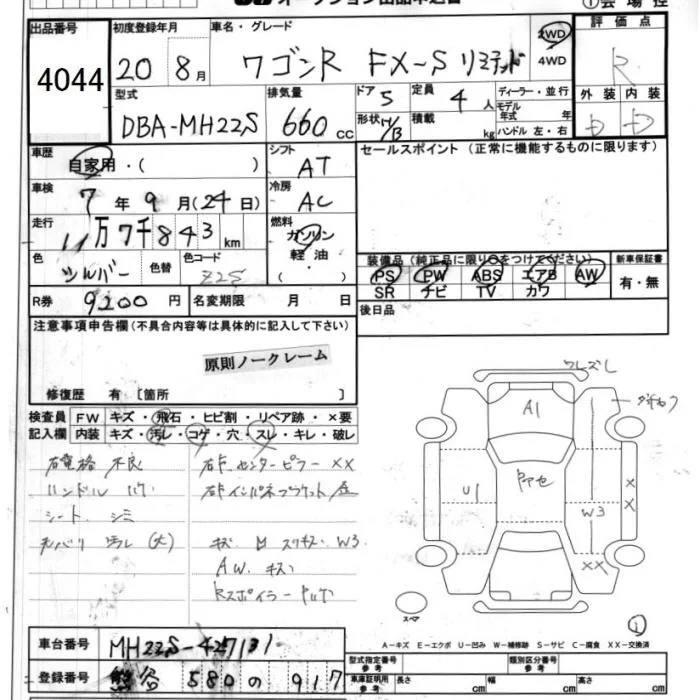 オークション出品申込書
①会場控
出品番号 4044
初度登録年月 20 8月
車名・グレード ワゴンR FX-S リミテッド
2WD
4WD
評価点 R
外装 内装
D D
型式 DBA-MH22S
排気量 660 cc
ドア 5
定員 4人
形状 V/B
積載 kg
ディーラー・並行
モデル年式 年
ハンドル 左・右
車歴 自家用・( )
シフト AT
セールスポイント(正常に機能するものに限ります)
車検 7年9月(24日)
冷房 AC
走行 11万7千843km
燃料 ガソリン
軽油・( )
色 シルバー 色替
色コード Z2S
装備品(純正品に限り○をつけてください)
PS PW ABS エアB AW
SR ナビ TV カワ
新車保証書
有・無
R券 9200円
名変期限 月 日
後日品
注意事項申告欄(不具合内容等は具体的に記入して下さい)
原則ノークレーム
修復歴 有[箇所 ]
検査員記入欄
FW キズ・飛石・ヒビ割・リペア跡・×要
内装 キズ・汚レ・コゲ・穴・スレ・キレ・破レ
不良
右F センターピラー XX
ハンドル
シート シミ
汚レ(大)
キズ W3
AW キズ
Rスポイラー
ワレズレ
A1
U1
W3
XX
XX
スペア
①
A-キズ E-エクボ U-凹み W-補修跡 S-サビ C-腐食 XX-交換済
車台番号 MH22S-427131
登録番号 熊谷 580 の 917
型式指定番号 参考
類別区分番号 参考
車庫証明用 参考 長さ cm 幅 cm 高さ cm